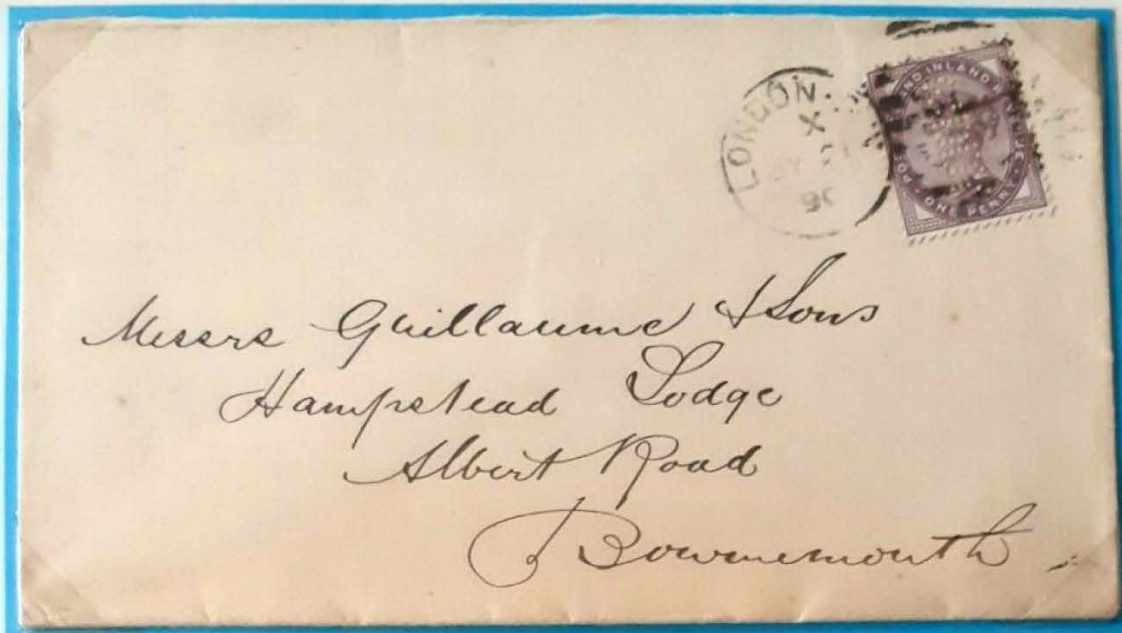 LONDON.
X
90
AND INLAND
ONE PENNY
Messrs Guillaume & Sons
Hampstead Lodge
Albert Road
Bournemouth